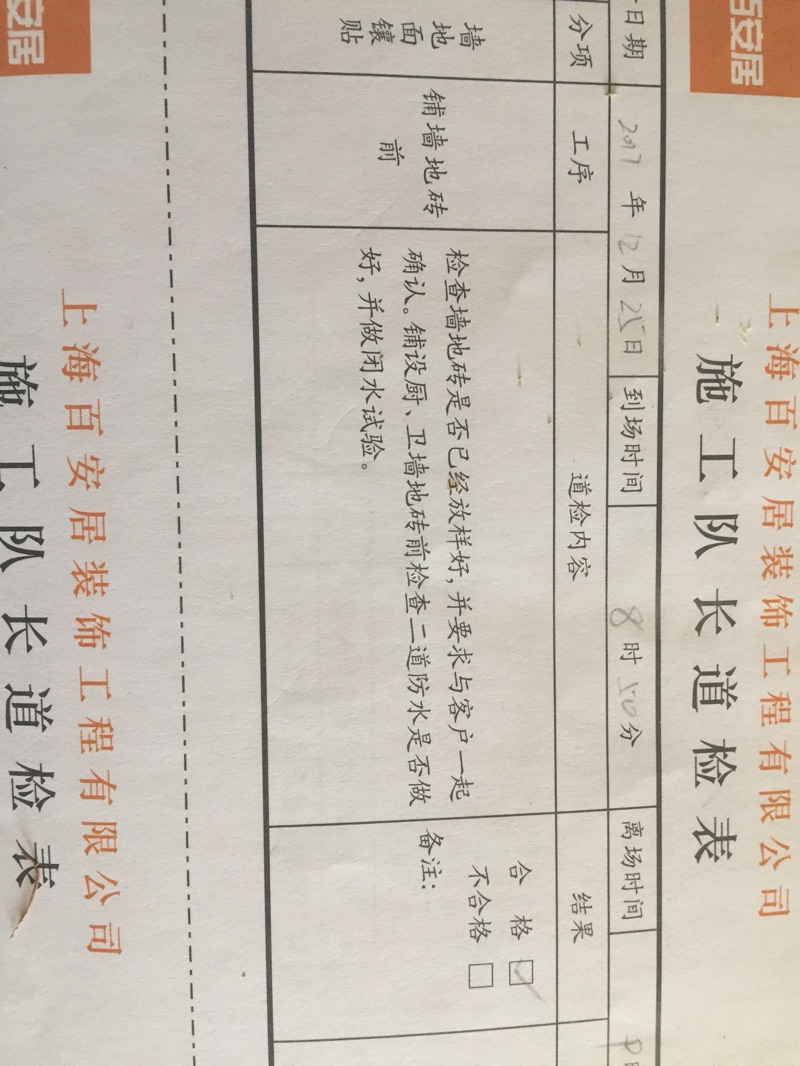 百安居
上海百安居装饰工程有限公司
施工队长道检表
日期 2017年12月25日 到场时间 8时50分 离场时间
分项 工序 道检内容 结果
墙地面镶贴
铺墙地砖前
检查墙地砖是否已经放样好，并要求与客户一起
确认。铺设厨、卫墙地砖前检查二道防水是否做
好，并做闭水试验。
合格 ☑
不合格 □
备注：
安居
上海百安居装饰工程有限公司
施工队长道检表